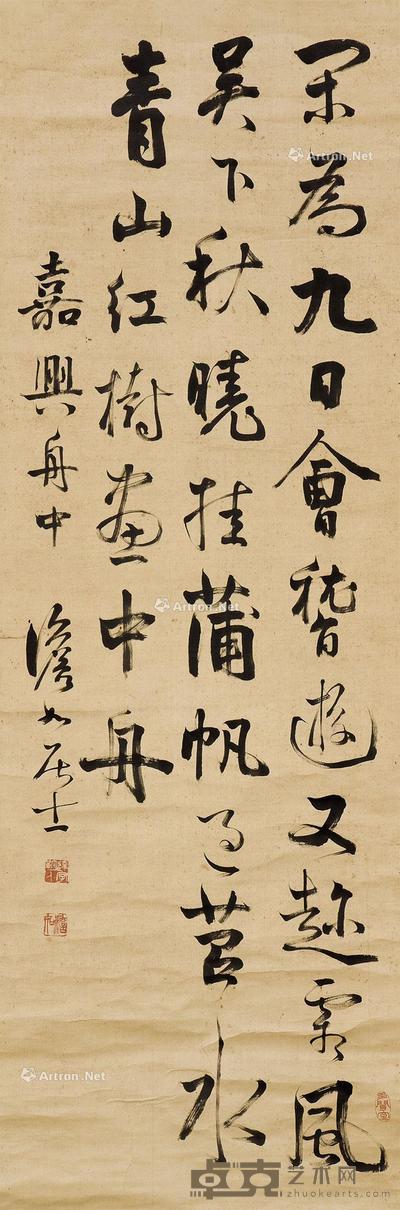 閑為九日會稽遊又趂霜風
吳下秋曉挂蒲帆過苕水
青山紅樹畫中舟
嘉興舟中 澹如居士
Artron.Net
Artron.Net
Artron.Net
Artron.Net
卓克艺术网
zhuokearts.com